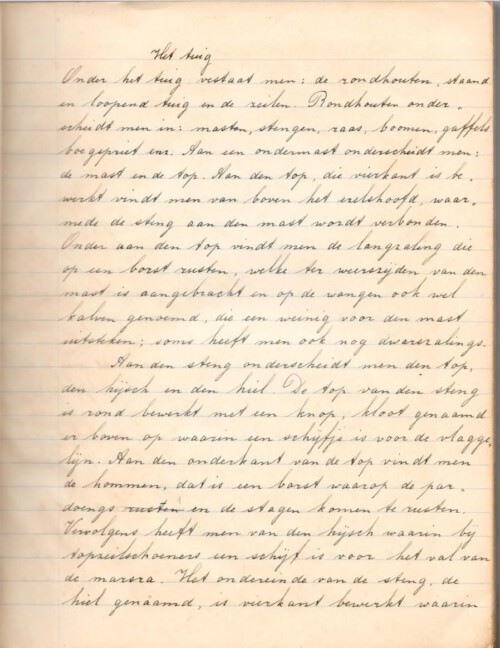 Het tuig
Onder het tuig vestaat men: de rondhouten, staand
en loopend tuig en de zeilen. Rondhouten onder-
scheidt men in: masten, stengen, raas, boomen, gaffels
boegspriet enz. Aan een ondermast onderscheidt men:
de mast en de top. Aan den top, die vierkant is be-
werkt vindt men van boven het ezelshoofd, waar-
mede de steng aan den mast wordt verbonden.
Onder aan den top vindt men de langzaling die
op een borst rusten, welke ter weerszijden van den
mast is aangebracht en op de wangen ook wel
kalven genoemd, die een weinig voor den mast
uitsteken; soms heeft men ook nog dwarszalings.
Aan den steng onderscheidt men den top,
den hijsch en den hiel. De top van den steng
is rond bewerkt met een knop, kloot genaamd
er boven op waarin een schijfje is voor de vlagge-
lijn. Aan den onderkant van de top vindt men
de hommen, dat is een borst waarop de par-
doengs rusten en de stagen komen te rusten.
Vervolgens heeft men van den hijsch waarin bij
topzeilschoeners een schijf is voor het val van
de marsra. Het ondereinde van de steng, de
hiel genaamd, is vierkant bewerkt waarin